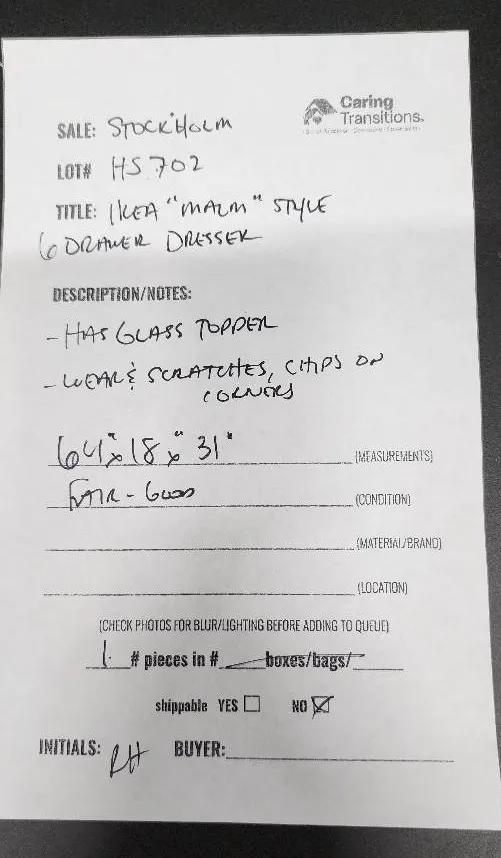 Caring
Transitions.
SALE: STOCKHOLM
LOT# HS 702
TITLE: IKEA "MALM" STYLE
6 DRAWER DRESSER
DESCRIPTION/NOTES:
- HAS GLASS TOPPER
- WEAR & SCRATCHES, CHIPS ON
CORNERS
64" x 18" x 31" (MEASUREMENTS)
FAIR - GOOD (CONDITION)
(MATERIAL/BRAND)
(LOCATION)
(CHECK PHOTOS FOR BLUR/LIGHTING BEFORE ADDING TO QUEUE)
1 # pieces in # boxes/bags/
shippable YES NO
INITIALS: RH BUYER: